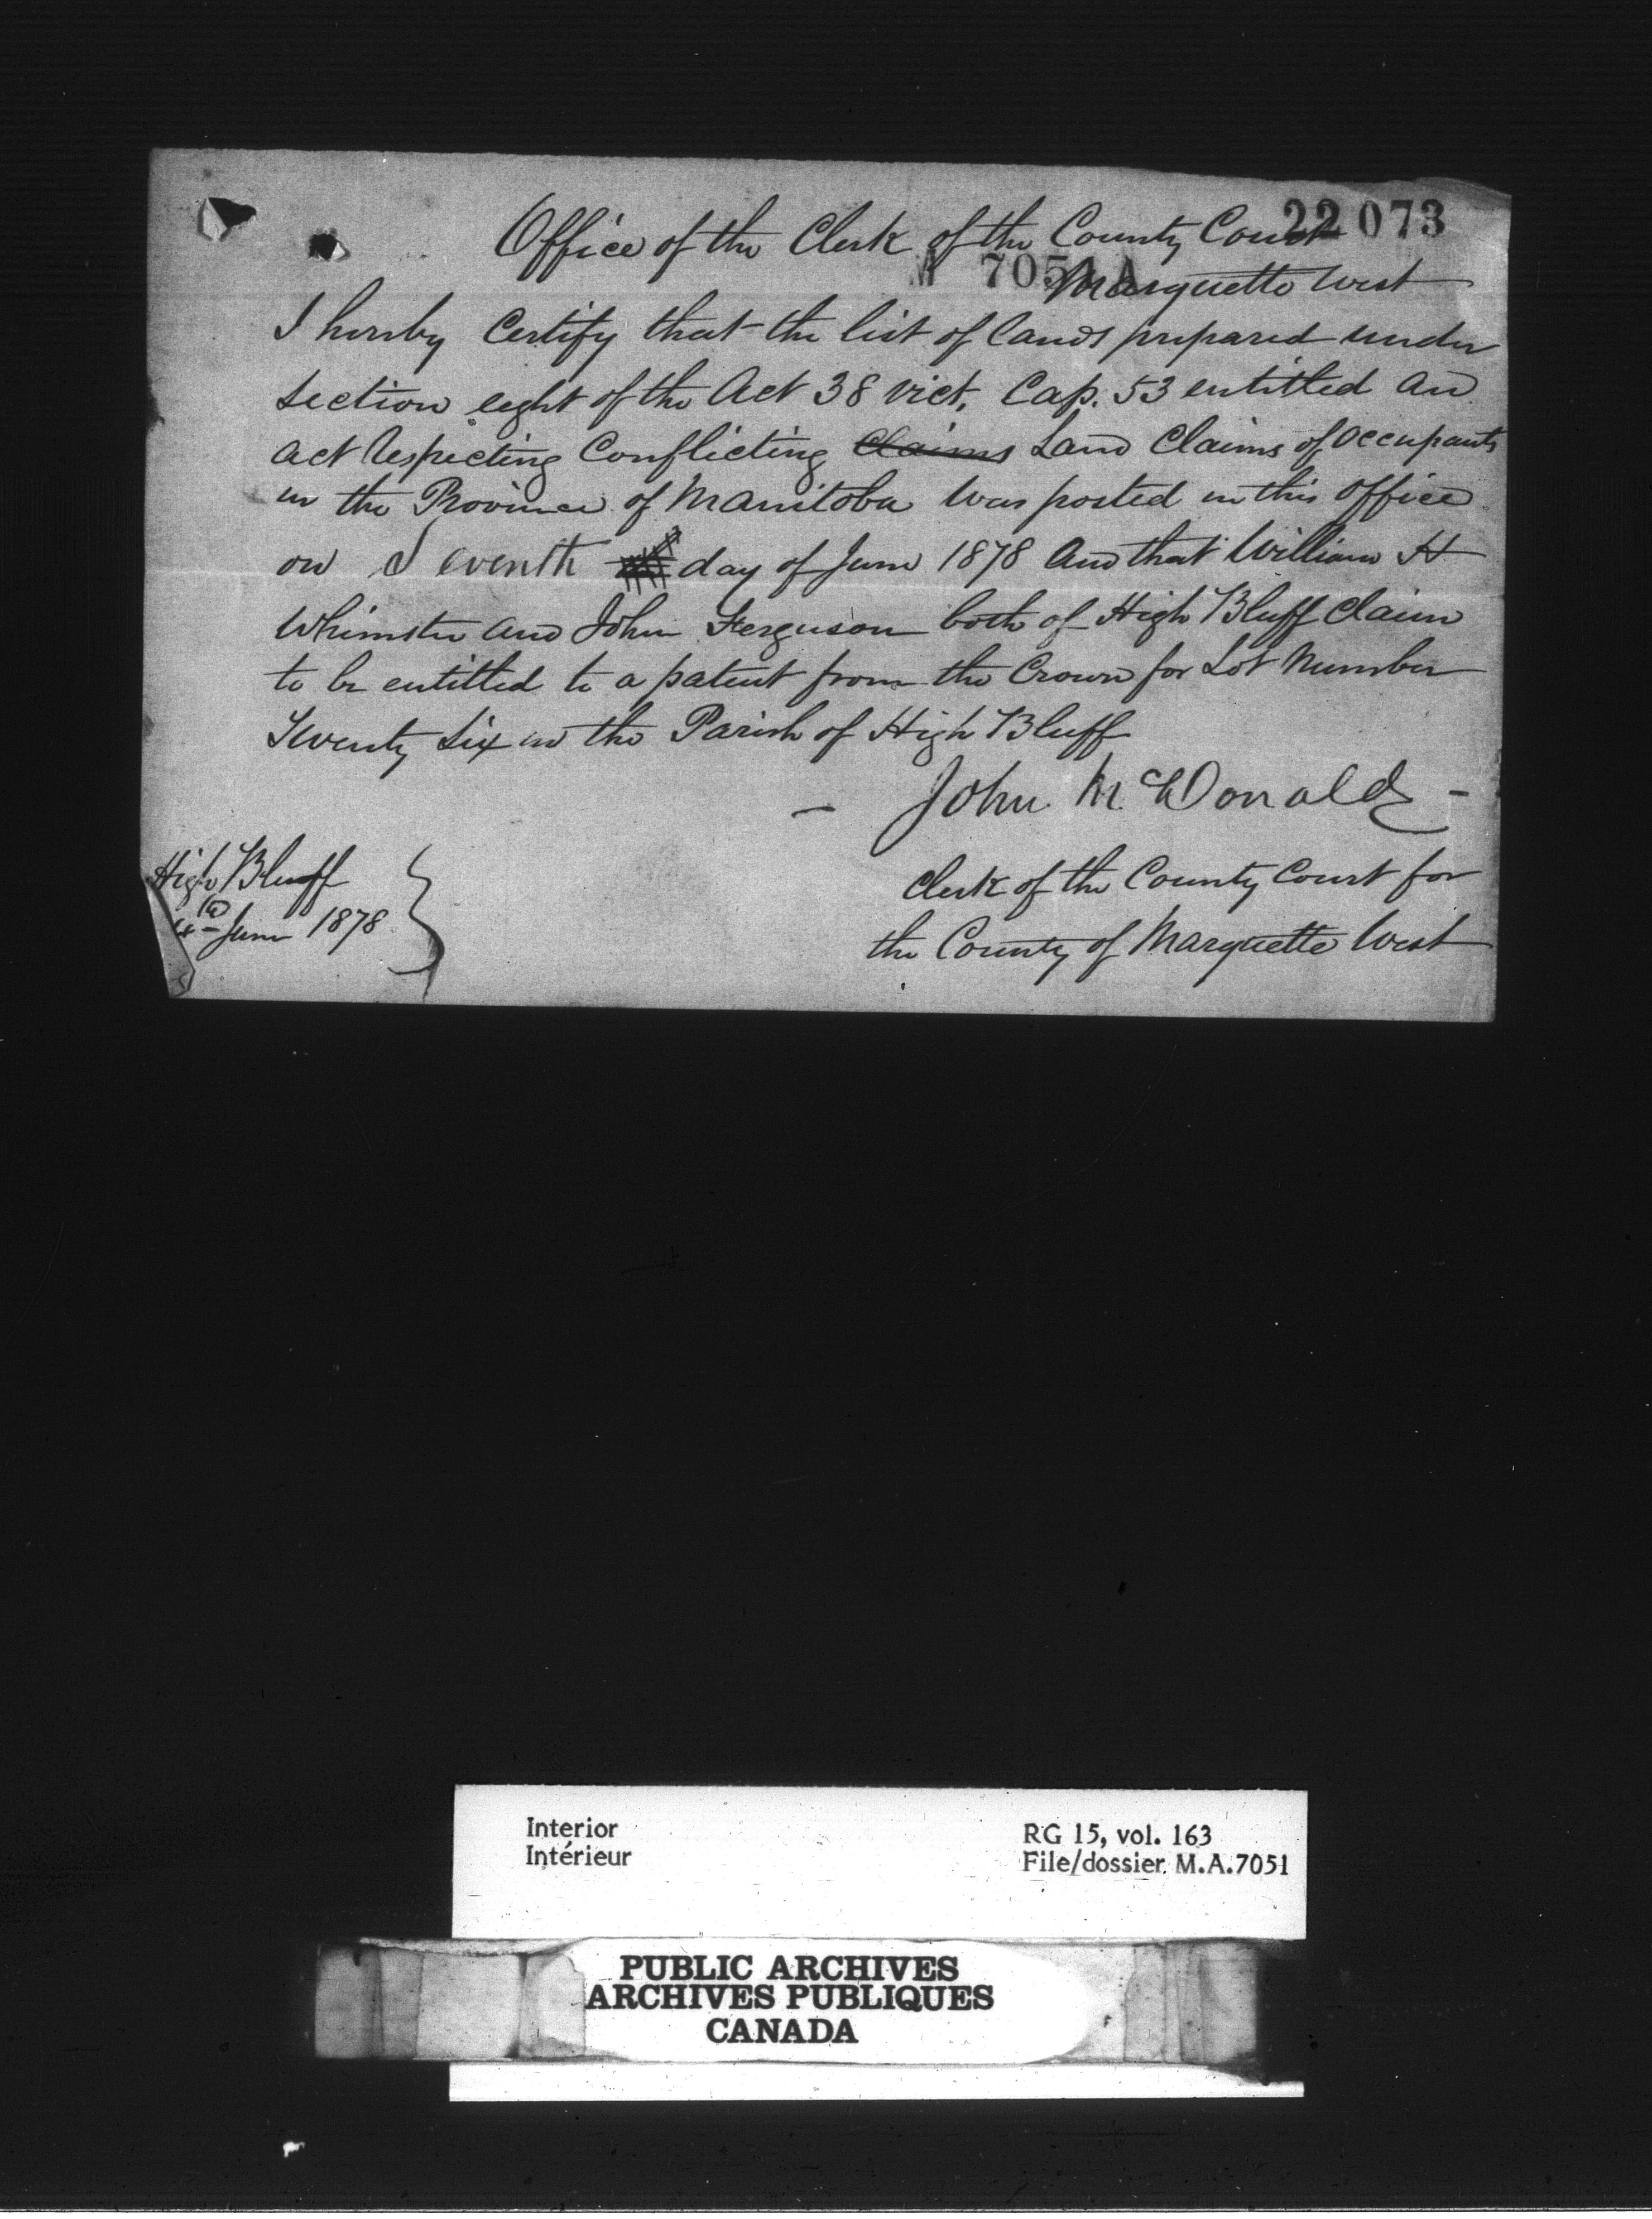 22073
Office of the Clerk of the County Court
M 7051 A
Marquette West
I hereby Certify that the list of lands prepared under
section eight of the Act 38 Vict. Cap. 53 entitled An
act Respecting Conflicting Claims Land Claims of Occupants
in the Province of Manitoba was posted in this office
on Seventh day of June 1878 And that William H
Whimster and John Ferguson both of High Bluff Claim
to be entitled to a patent from the Crown for Lot Number
Twenty Six in the Parish of High Bluff
John McDonald
Clerk of the County Court for
the County of Marquette West
High Bluff
June 1878
Interior
Intérieur
RG 15, vol. 163
File/dossier M.A.7051
PUBLIC ARCHIVES
ARCHIVES PUBLIQUES
CANADA